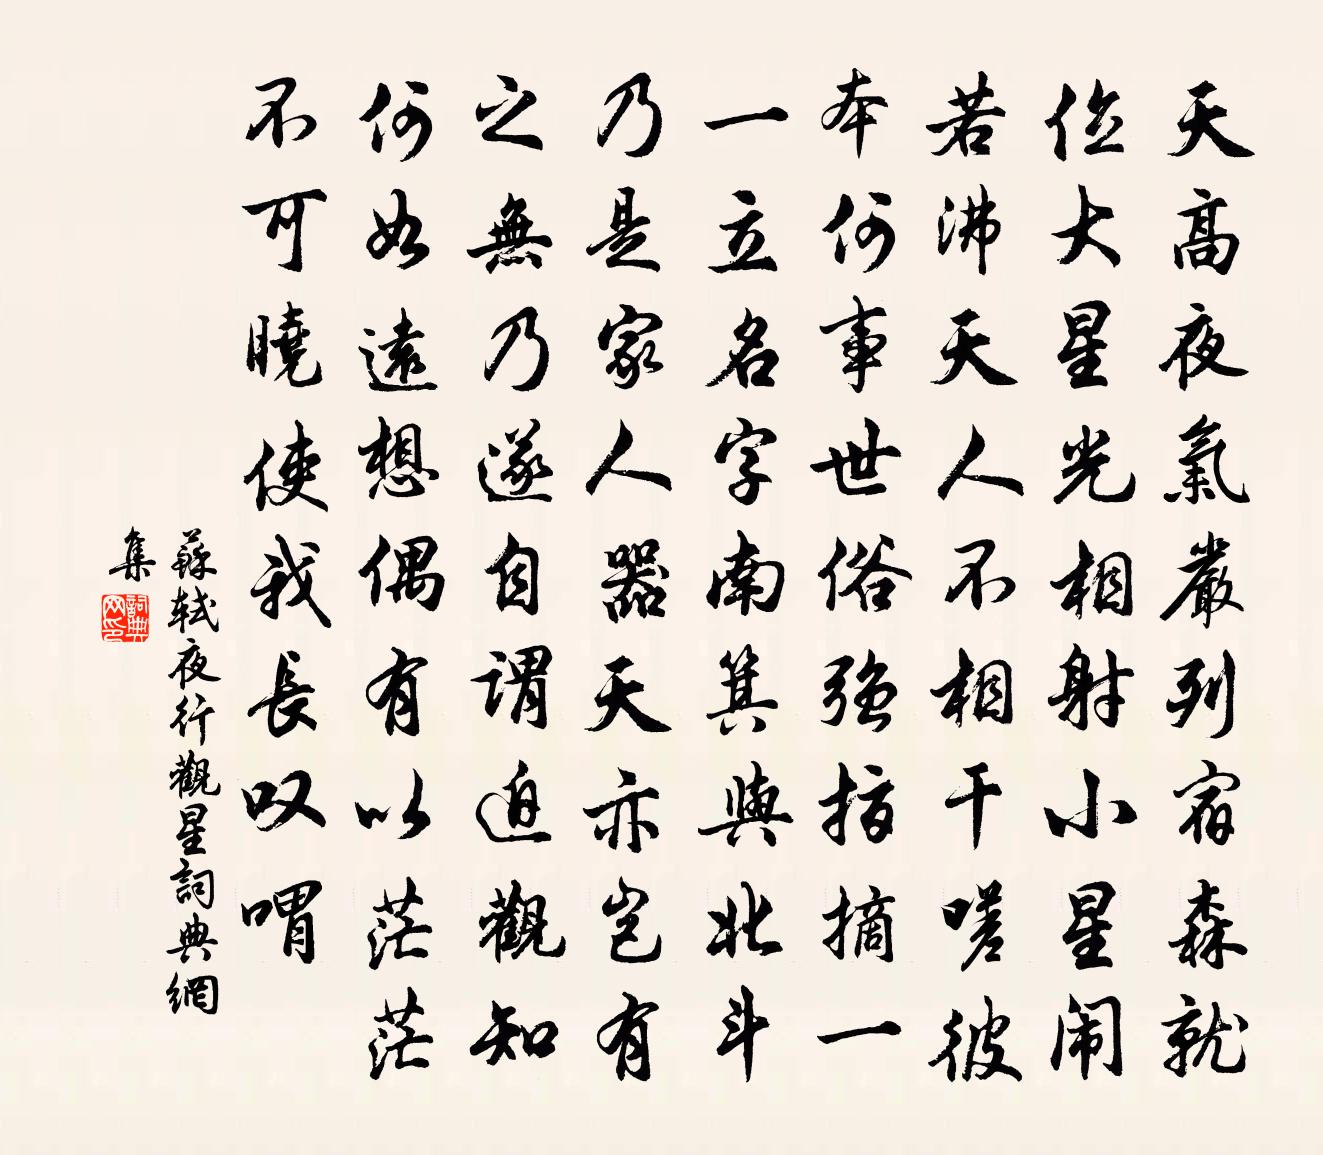 天高夜氣嚴列宿森就
位大星光相射小星闹
若沸天人不相干嗟彼
本何事世俗强指摘一
一立名字南箕與北斗
乃是家人器天亦岂有
之無乃遂自謂迫觀知
何如遠想偶有以茫茫
不可曉使我長叹喟
蘇轼夜行觀星詞典網
集
詞典网印